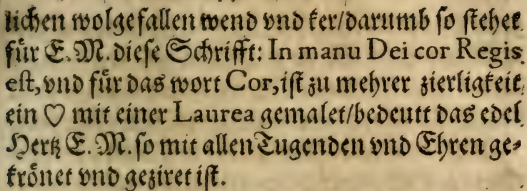 lichen wolgefallen wend vnd ker/darumb so stehet
für E.M. diese Schrifft: In manu Dei cor Regis
est, vnd für das wort Cor, ist zu mehrer zierligkeit
ein ♡ mit einer Laurea gemalet/bedeutt das edel
Hertz E.M. so mit allen Tugenden vnd Ehren ge-
krönet vnd geziret ist.